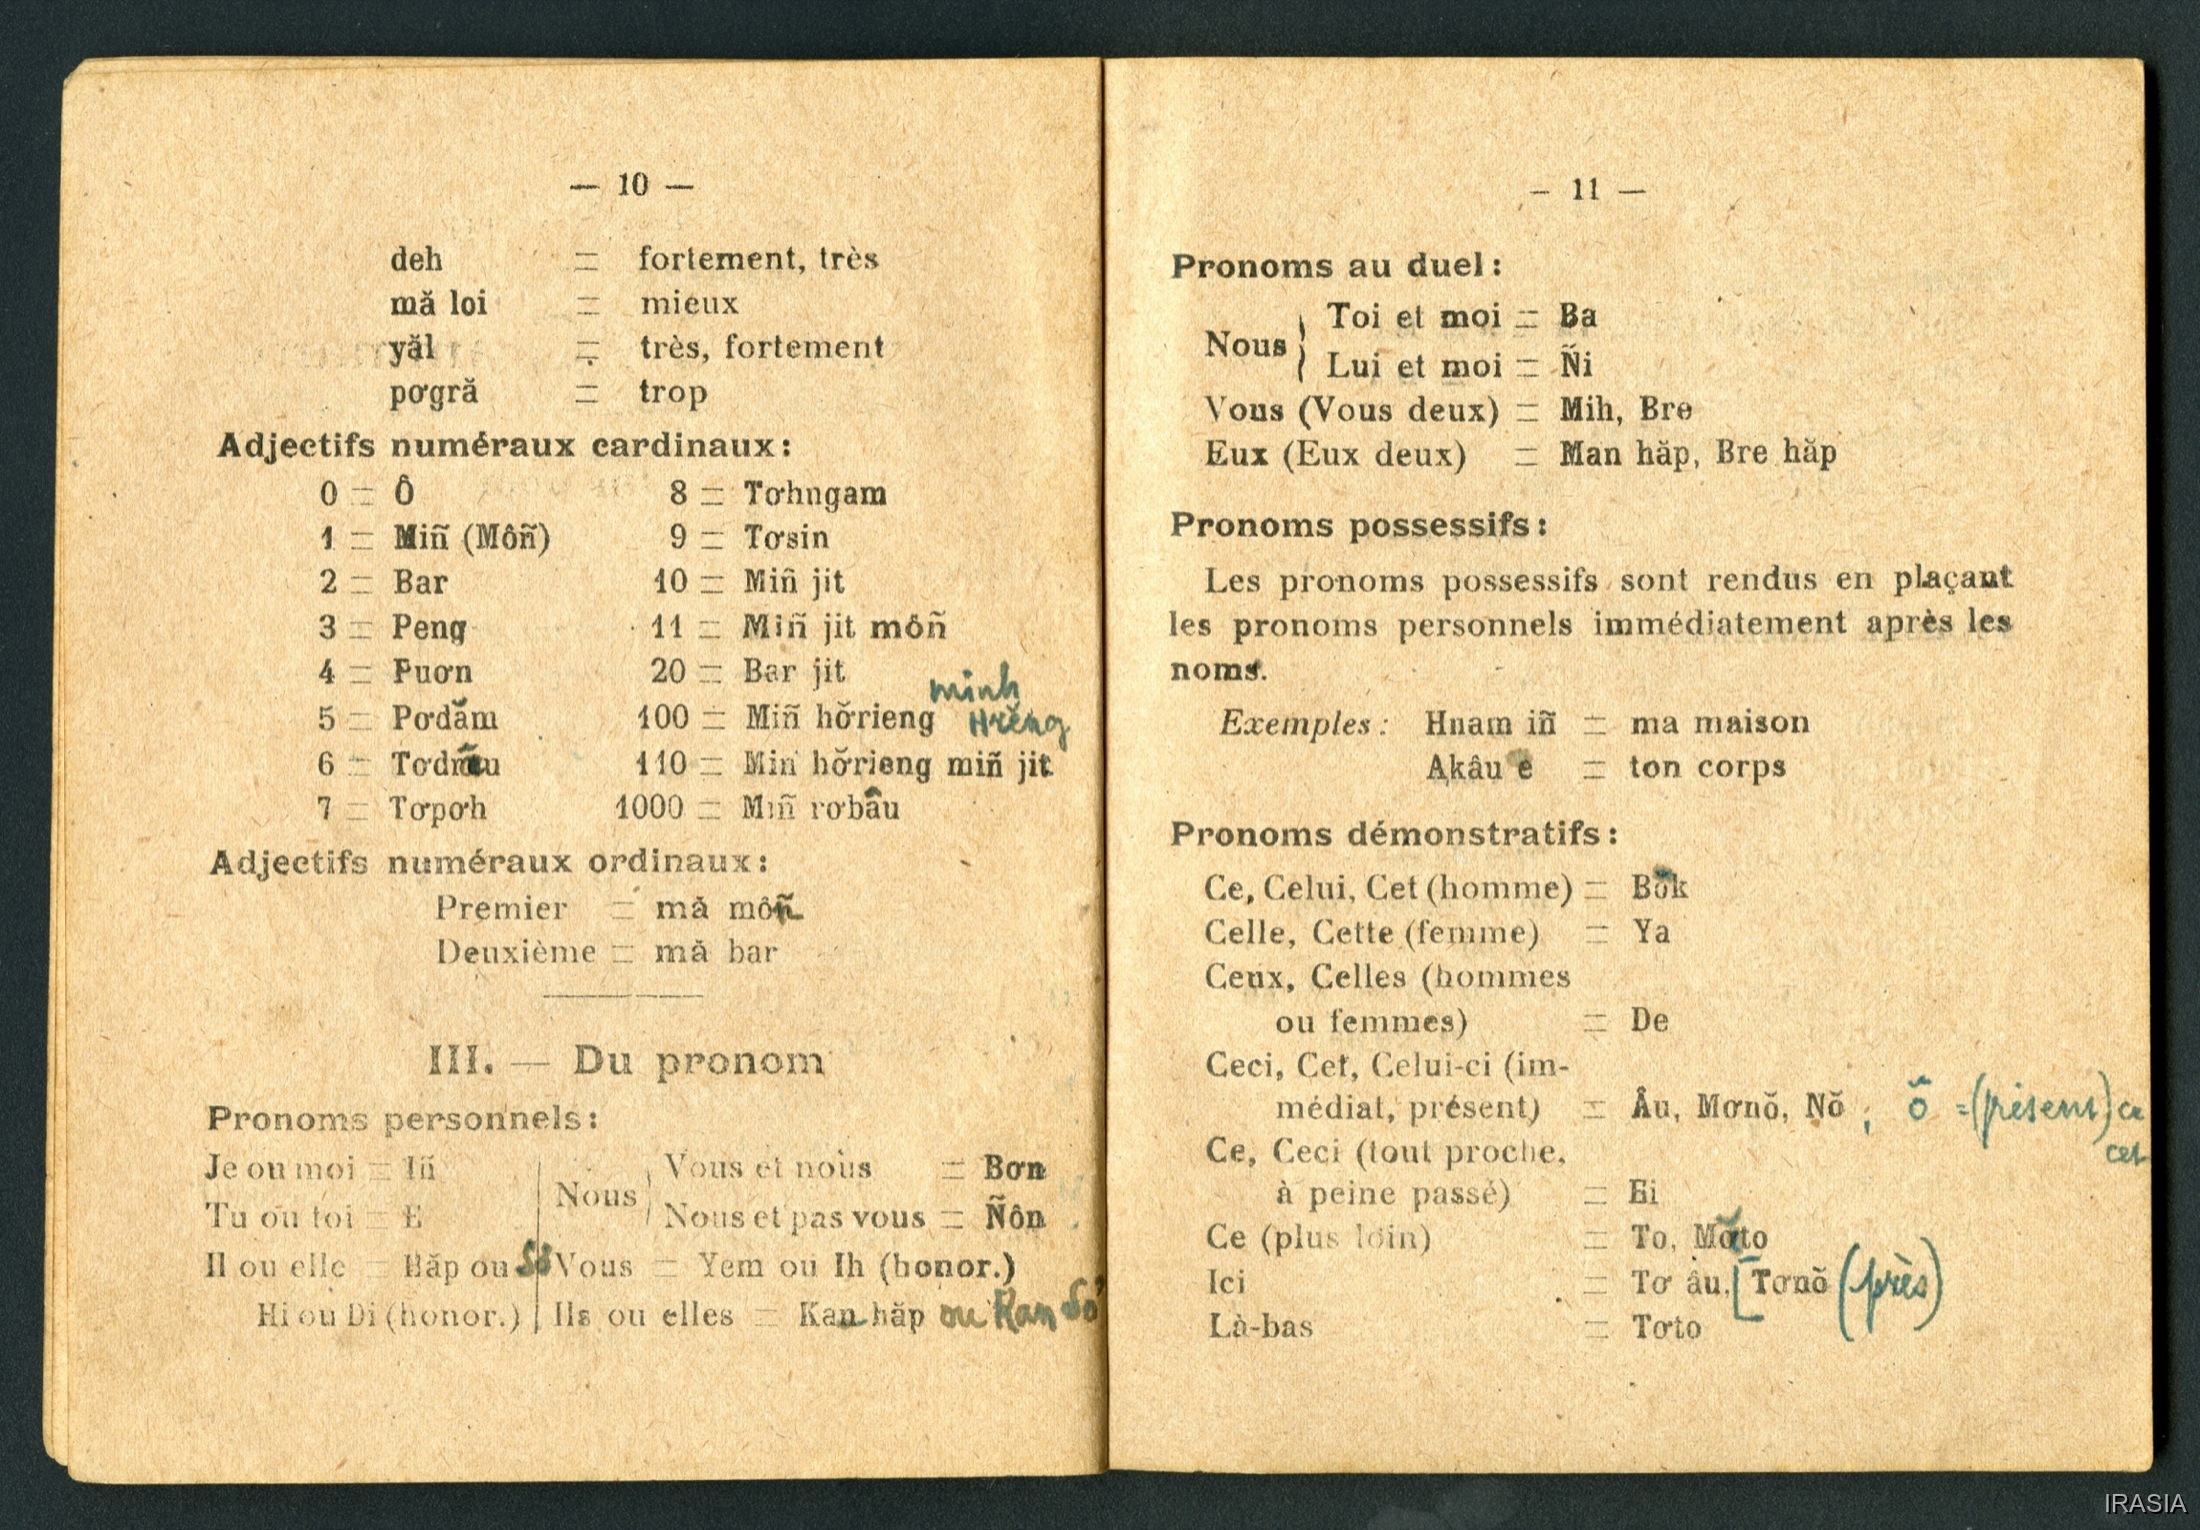 — 10 —
deh = fortement, très
mă loi = mieux
yăl = très, fortement
pơgră = trop
Adjectifs numéraux cardinaux :
0 = Ô 8 = Tơhngam
1 = Miñ (Môñ) 9 = Tơsin
2 = Bar 10 = Miñ jit
3 = Peng 11 = Miñ jit môñ
4 = Puơn 20 = Bar jit
minh
5 = Pơdăm 100 = Miñ hơ̆rieng Hrĕng
6 = 110 = Min hơ̆rieng miñ jit
7 = Tơpơh 1000 = Miñ rơbâu
Adjectifs numéraux ordinaux :
Premier = mă môñ
Deuxième = mă bar
III. — Du pronom
Pronoms personnels :
Je ou moi = Iñ Vous et nous = Bơn
Nous
Tu ou toi = E Nous et pas vous = Ñôn
Il ou elle = Hăp ou Vous = Yem ou Ih (honor.)
Hi ou Di (honor.) Ils ou elles = Kan hăp ou Kan
— 11 —
Pronoms au duel :
Toi et moi = Ba
Nous
Lui et moi = Ñi
Vous (Vous deux) = Mih, Bre
Eux (Eux deux) = Man hăp, Bre hăp
Pronoms possessifs :
Les pronoms possessifs sont rendus en plaçant
les pronoms personnels immédiatement après les
noms.
Exemples : Hnam iñ = ma maison
Akâu e = ton corps
Pronoms démonstratifs :
Ce, Celui, Cet (homme) = Bŏk
Celle, Cette (femme) = Ya
Ceux, Celles (hommes
ou femmes) = De
Ceci, Cet, Celui-ci (im-
médiat, présent) = Âu, Mơnŏ, Nŏ ; ŏ = (présent) ce
cet
Ce, Ceci (tout proche,
à peine passé) = Ei
Ce (plus loin) = To, Măto
Ici = Tơ âu, [Tơnŏ (près)
Là-bas = Tơto
IRASIA